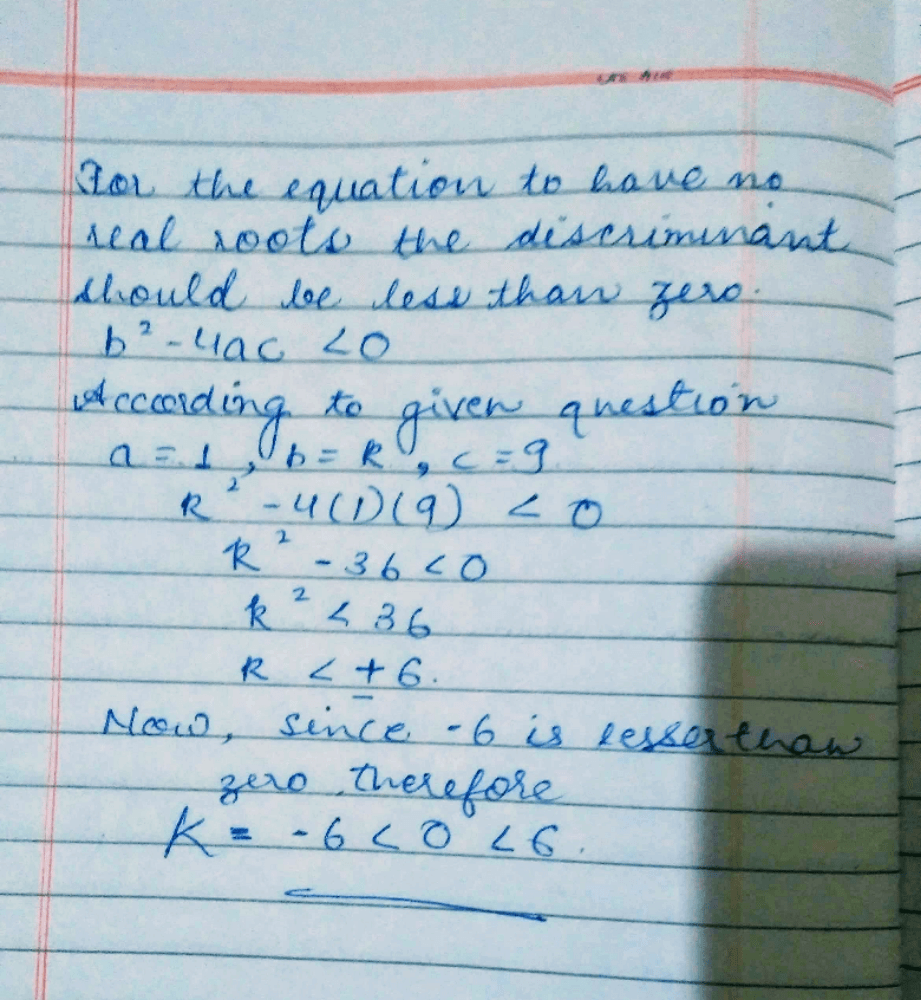 For the equation to have no
real roots the discriminant
should be less than zero.
b² - 4ac < 0
According to given question
a = 1, b = k, c = 9
k² - 4(1)(9) < 0
k² - 36 < 0
k² < 36
k < ± 6.
Now, since -6 is lesser than
zero therefore
K = -6 < 0 < 6.